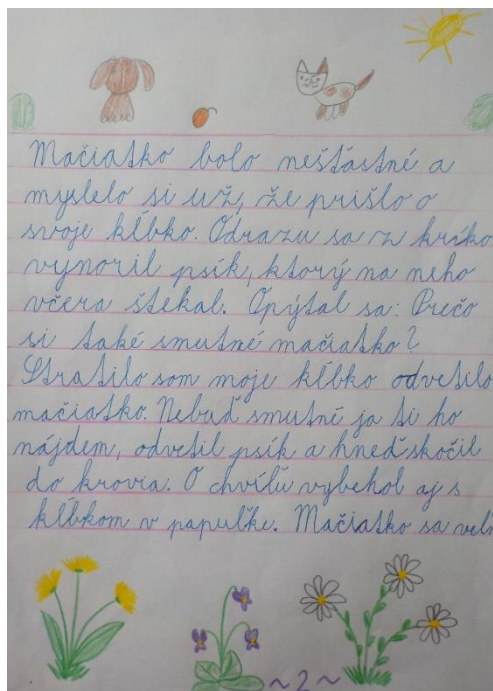 Mačiatko bolo nešťastné a
myslelo si už, že prišlo o
svoje kĺbko. Odrazu sa z kríko
vynoril psík, ktorý na neho
včera štekal. Opýtal sa: Prečo
si také smutné mačiatko?
Stratilo som moje kĺbko odvetilo
mačiatko. Nebuď smutné ja ti ho
nájdem, odvetil psík a hneď skočil
do krovia. O chvíľu vybehol aj s
kĺbkom v papuľke. Mačiatko sa veľ
~2~